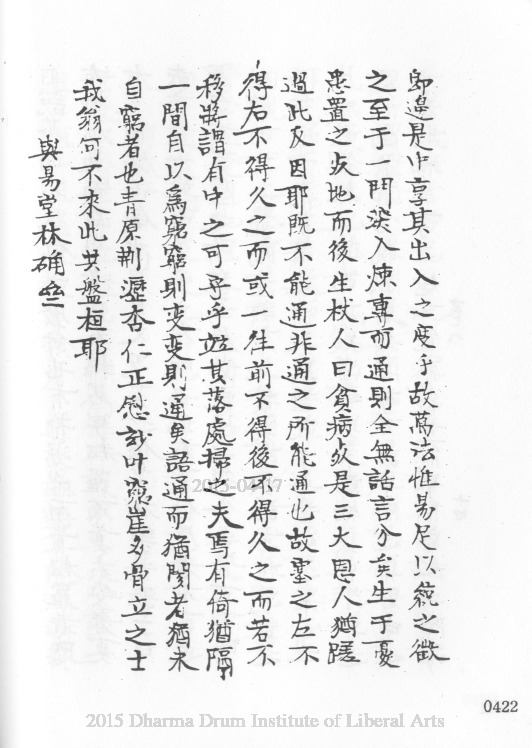 即邊是中享其出入之度乎故萬法惟易足以藐之徵
之至于一門深入煉專而通則全無話言分矣生于憂
患置之死地而後生杖人曰貧病死是三大恩人猶隔
過此及因耶既不能通非通之所能通也故塞之左不
得右不得久之而或一往前不得後不得久之而若不
移將謂有中之可乎乎並其落處掃之夫焉有倚猶隔
一間自以為窮窮則变变則通矣語通而猶閡者猶未
自窮者也青原荊瀝杏仁正慰吵叶窮崖多骨立之士
我翁何不來此共盤桓耶
與易堂林確
2015-04-17
0422
2015 Dharma Drum Institute of Liberal Arts